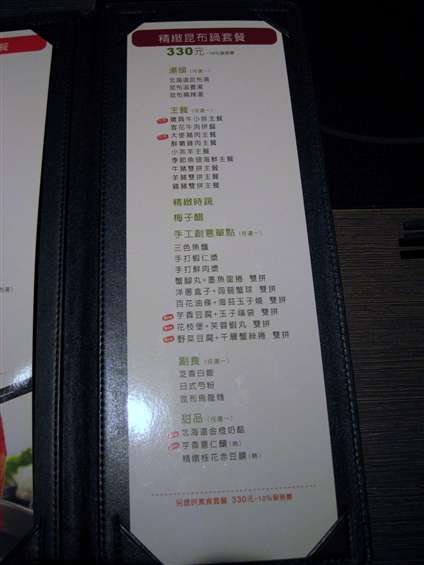 精緻昆布鍋套餐
330元 +10%服務費
湯頭(任選一)
北海道昆布湯
昆布滋養湯
昆布麻辣湯
主餐(任選一)
嫩肩牛小排主餐
雪花牛肉拼盤
大里豬肉主餐
鮮嫩雞肉主餐
小羔羊主餐
季節魚頭海鮮主餐
牛豬雙拼主餐
羊豬雙拼主餐
雞豬雙拼主餐
精緻時蔬
梅子醋
手工創意單點(任選一)
三色魚麵
手打蝦仁漿
手打鮮肉漿
蟹腳丸+墨魚蛋捲 雙拼
洋蔥盒子+蒟蒻蟹球 雙拼
百花油條+海苔玉子燒 雙拼
芋香豆腐+玉子福袋 雙拼
花枝堡+芙蓉蝦丸 雙拼
野菜豆腐+千層蟹絲捲 雙拼
副食(任選一)
芝香白飯
日式冬粉
昆布烏龍麵
甜品(任選一)
北海道金橙奶酪
芋香薏仁釀(熱)
精緻桂花赤豆釀(熱)
另提供素食套餐 330元+10%服務費